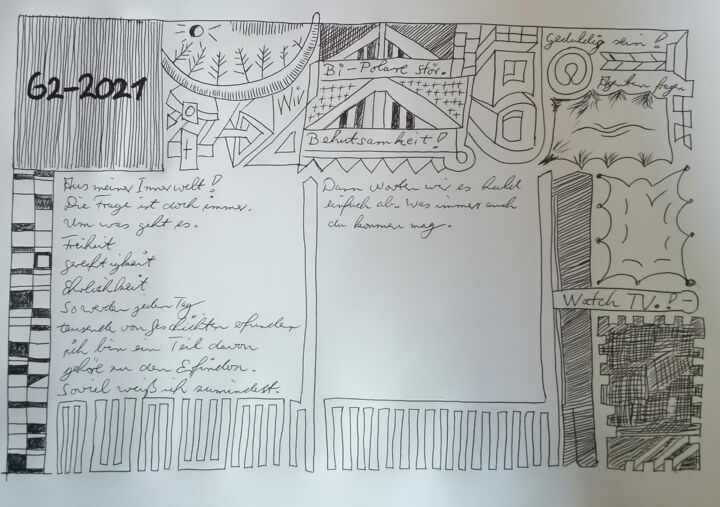 62-2021
Wir
Bi-Polare Stör.
Behutsamkeit!
geduldig sein!
fragen
Aus meiner Innerwelt!
Die Frage ist doch immer.
Um was geht es.
Freiheit
gerechtigkeit
Ehrlichkeit
So werden jeden Tag
tausende von Geschichten erfunden
ich bin ein Teil davon
gehöre zu den Erfindern.
Soviel weiß ich zumindest.
Dann warten wir es hald
einfach ab. Was immer auch
da kommen mag.
Watch TV.!